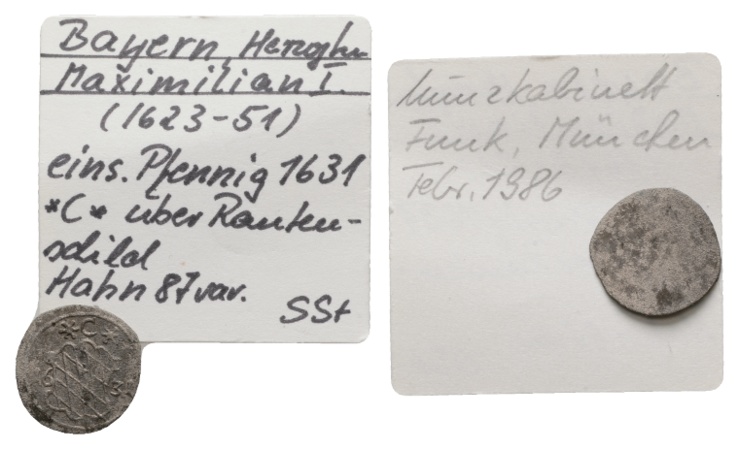 Bayern, Herzogtm
Maximilian I.
(1623-51)
eins. Pfennig 1631
*C* über Rauten-
schild
Hahn 87 var.
SSt
*C*
6 3
Münzkabinett
Funk, München
Febr. 1986